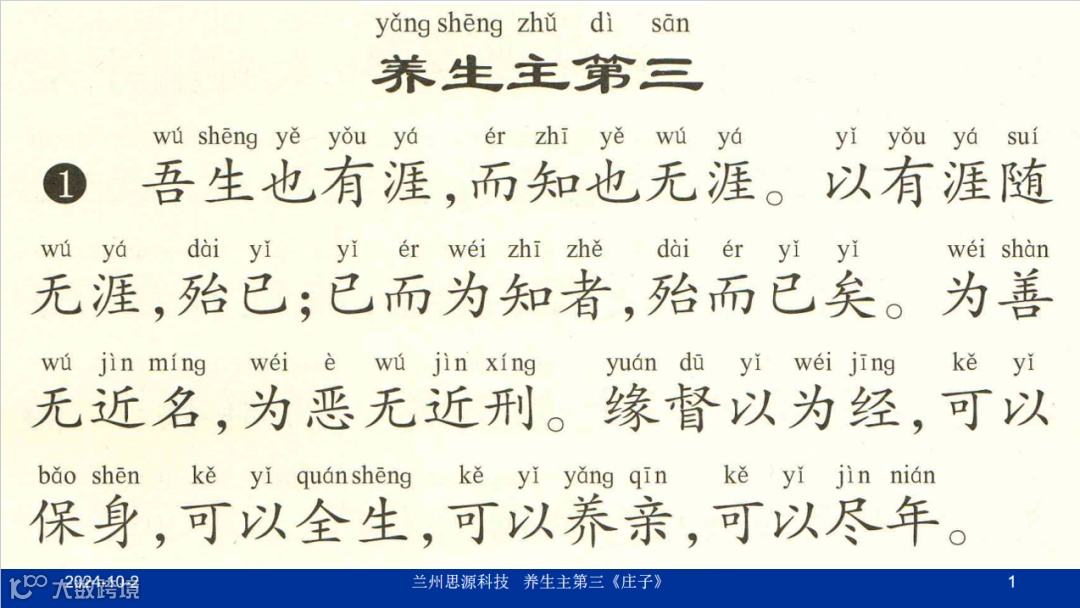 yǎng shēng zhǔ dì sān
养生主第三
wú shēng yě yǒu yá ér zhī yě wú yá yǐ yǒu yá suí
❶ 吾生也有涯，而知也无涯。以有涯随
wú yá dài yǐ yǐ ér wéi zhī zhě dài ér yǐ yǐ wéi shàn
无涯，殆已；已而为知者，殆而已矣。为善
wú jìn míng wéi è wú jìn xíng yuán dū yǐ wéi jīng kě yǐ
无近名，为恶无近刑。缘督以为经，可以
bǎo shēn kě yǐ quán shēng kě yǐ yǎng qīn kě yǐ jìn nián
保身，可以全生，可以养亲，可以尽年。
2024-10-2 兰州思源科技 养生主第三《庄子》 1
大数跨境